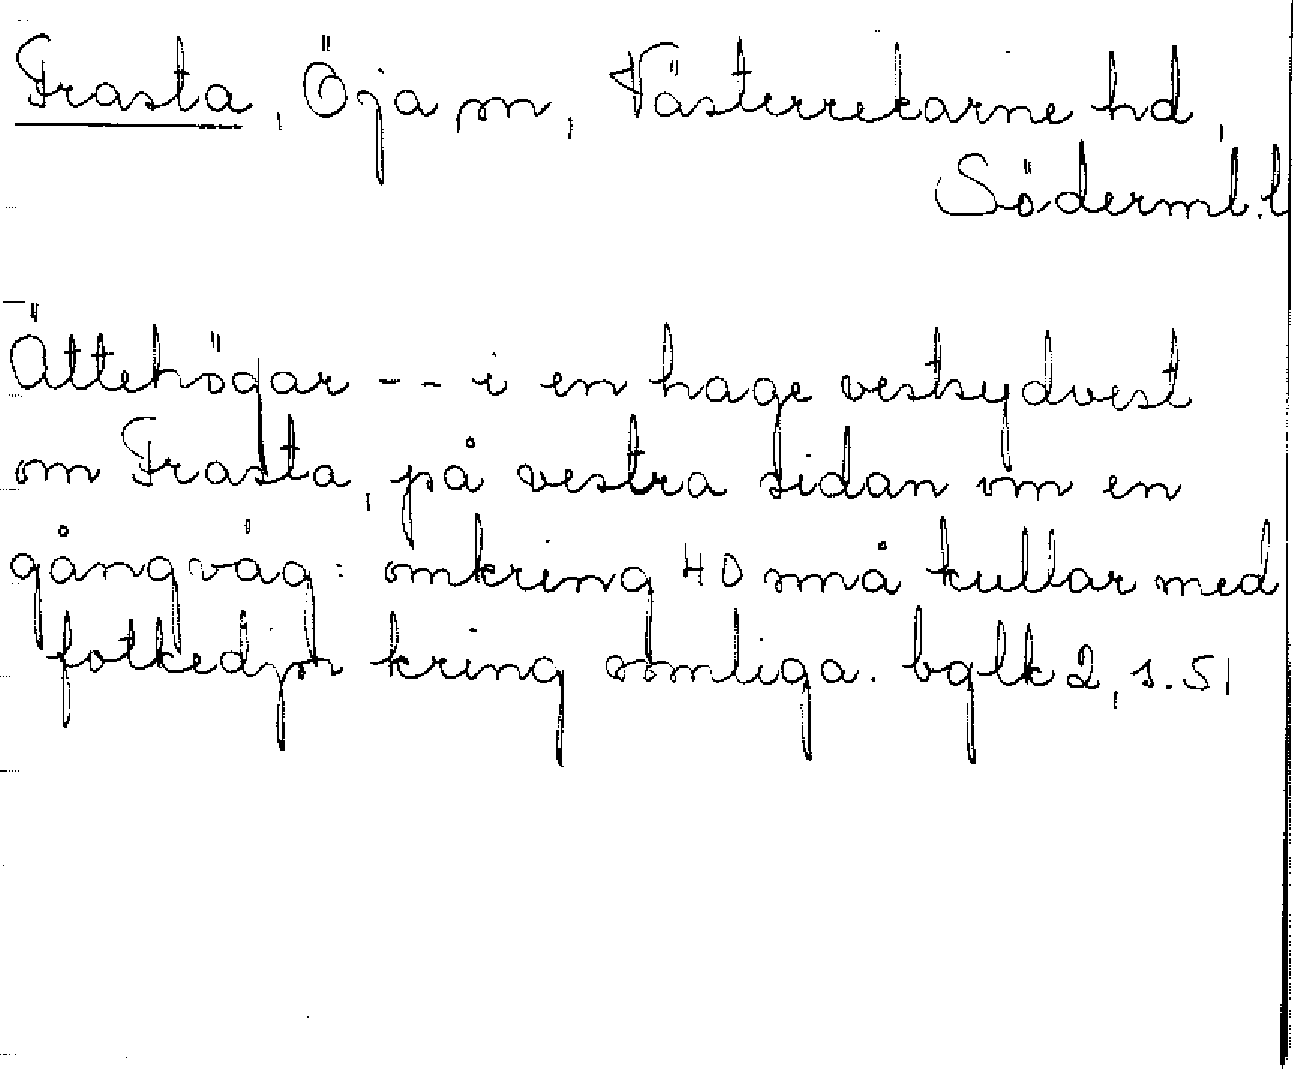 Frasta, Öja sn, Västerrekarne hd,
Söderml. l
Ättehögar -- i en hage vestsydvest
om Frasta, på vestra sidan om en
gångväg: omkring 40 små kullar med
fotkedjor kring somliga. bglk 2, s. 51